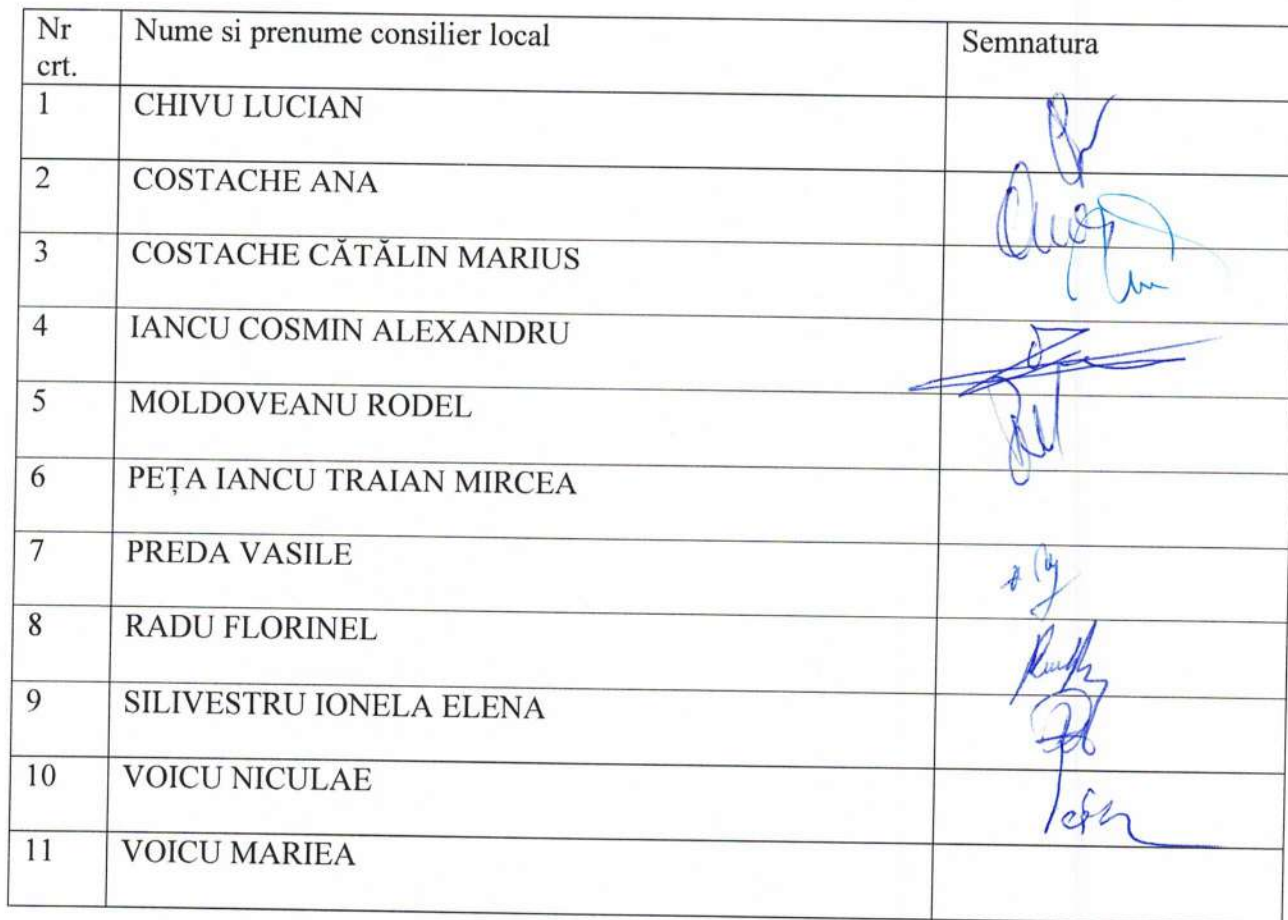 Nr Nume si prenume consilier local Semnatura
crt.
1 CHIVU LUCIAN
2 COSTACHE ANA
3 COSTACHE CĂTĂLIN MARIUS
4 IANCU COSMIN ALEXANDRU
5 MOLDOVEANU RODEL
6 PEȚA IANCU TRAIAN MIRCEA
7 PREDA VASILE
8 RADU FLORINEL
9 SILIVESTRU IONELA ELENA
10 VOICU NICULAE
11 VOICU MARIEA